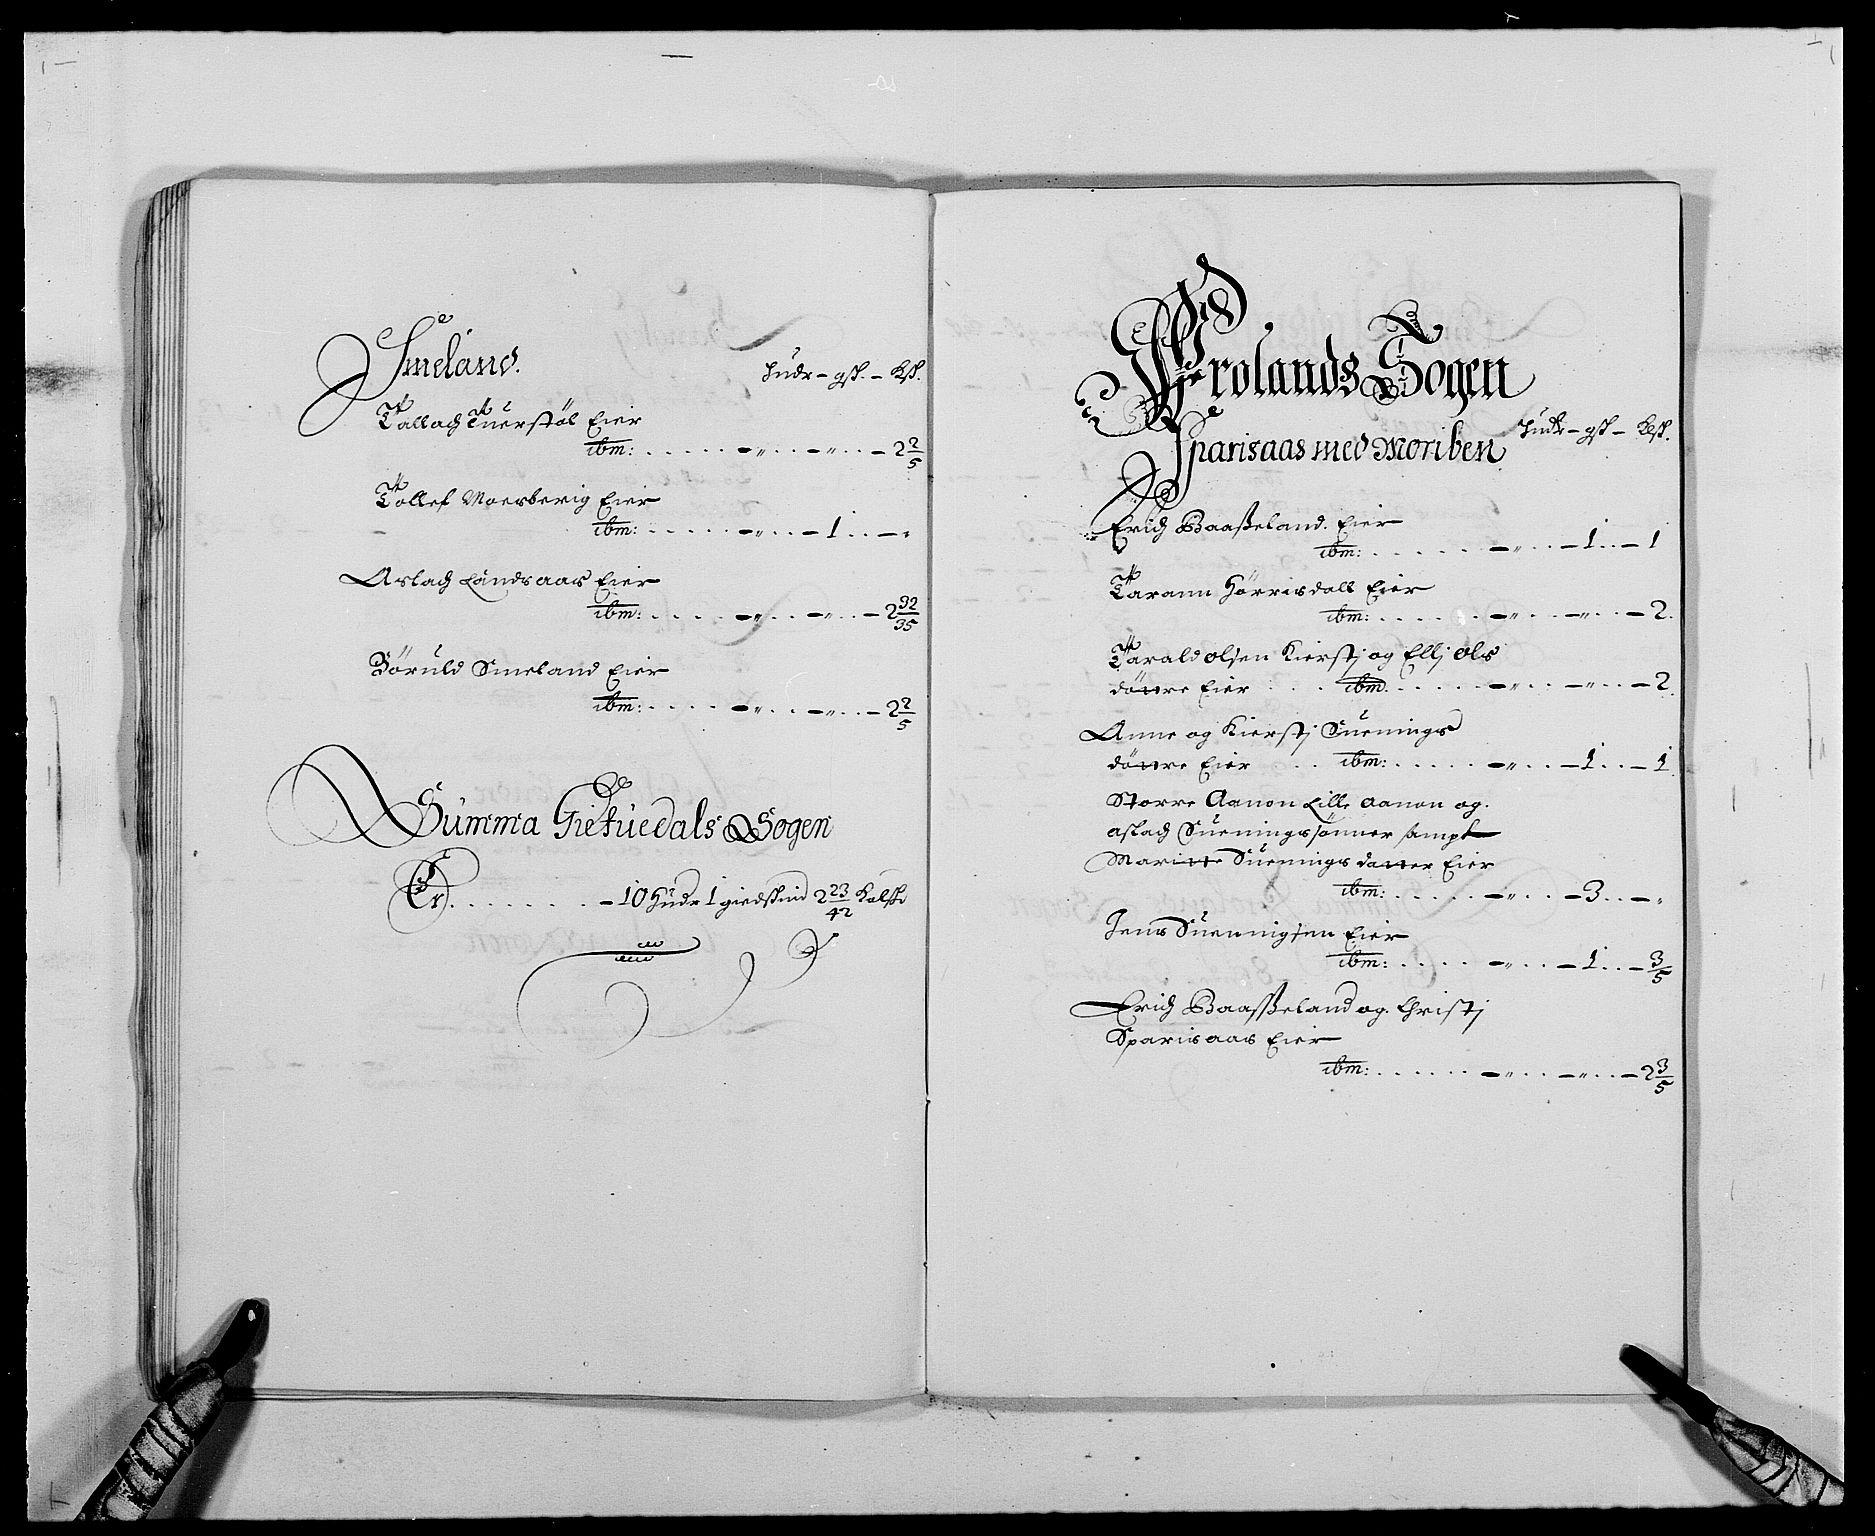 Smeland.
Hudr - gsk. - Ksk.
Tallach Tuerstöl Eier
ibm: . . . . . - „ . . - „ . . - 2 2/5
Tollef Moesberig Eier
ibm: . . . . . - „ . . - 1 . . - „
Aslach Landsaas Eier
ibm: . . . . . - „ . . - „ . . - 2 32/35
Böruld Smeland Eier
ibm: . . . . . - „ . . - „ . . - 2 2/5
Summa Giefuedals Sogen
Er . . . . . . . . - 10 Hudr 1 giedskind 2 23/42 Kalfsk
Frolands Sogen
Hudr - gsk - Ksk.
Sparisaas med Moriben
Erich Baaßeland Eier
ibm: . . . . . . - „ . . - 1 . . - 1
Tarann Hörrisdall Eier
ibm: . . . . . . - „ . . - „ . . - 2.
Tarald Olsen Kierstj og Ellj Ols
döttre Eier . . . ibm . . . . . . - „ . . - „ . . - 2.
Anne og Kierstj Suenings
döttre Eier . . ibm: . . . . . - „ . . - 1 . . - 1.
Storre Aanon Lille Aanon og
aslach Sueningssönner sampt
Maritte Suenings datter Eier
ibm: . . . . . - „ . . - 3 . . - „
Jens Sueningsen Eier
ibm: . . . . . - „ . . - 1 . . - 3/5
Erich Baasßeland og Christj
Sparisaas Eier
ibm: . . . . . . - „ . . - „ . . - 2 3/5